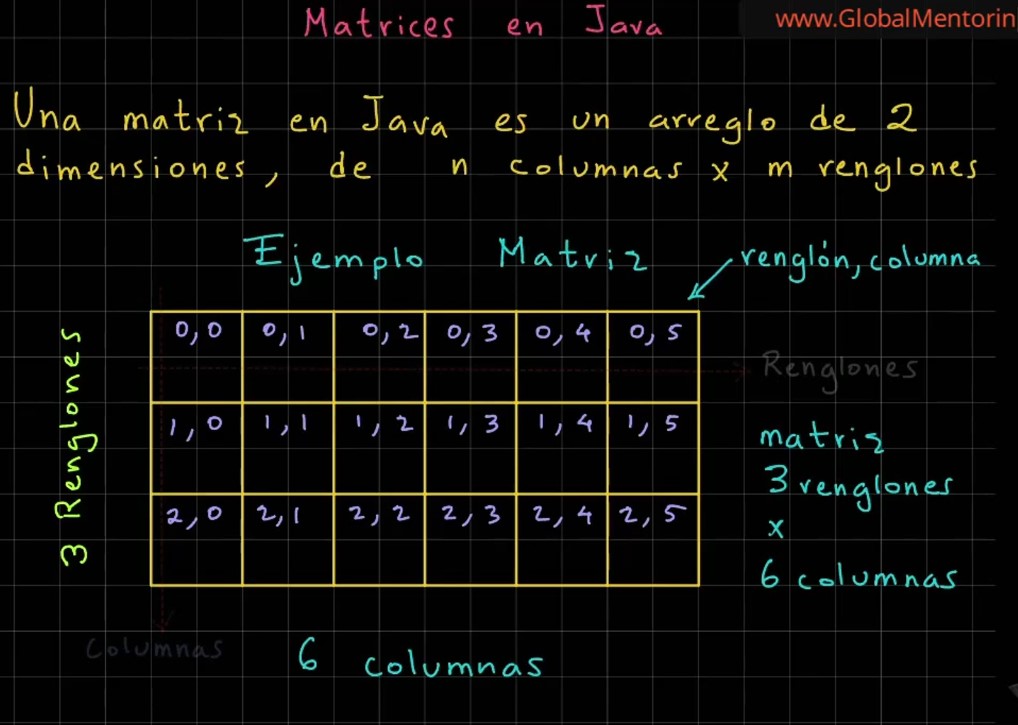 Matrices en Java
www.GlobalMentorin
Una matriz en Java es un arreglo de 2
dimensiones, de n columnas x m renglones
Ejemplo Matriz
renglón, columna
3 Renglones
0,0 0,1 0,2 0,3 0,4 0,5
1,0 1,1 1,2 1,3 1,4 1,5
2,0 2,1 2,2 2,3 2,4 2,5
Renglones
matriz
3 renglones
x
6 columnas
Columnas
6 columnas